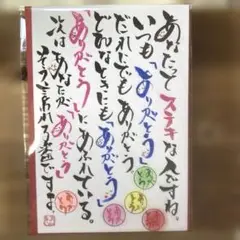 あなたってステキな人ですね。
いつも「ありがとう」
だれにでもありがとう
どんなときにも「ありがとう」
「ありがとう」にあふれている。
次はあなたが「ありがとう」
そう言われる番ですよ。